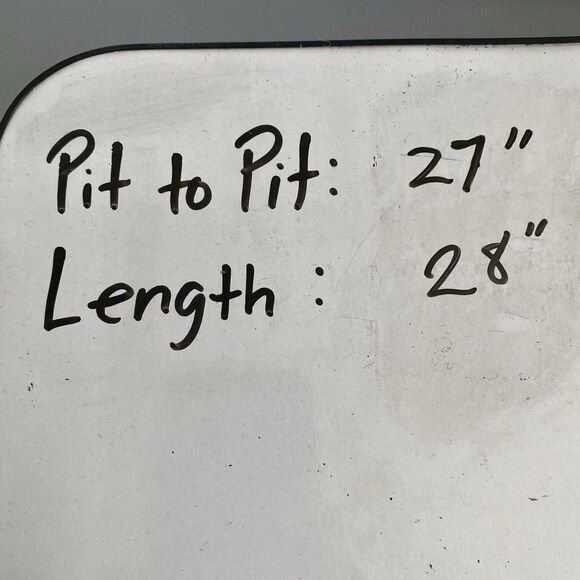 Pit to Pit: 27"
Length : 28"